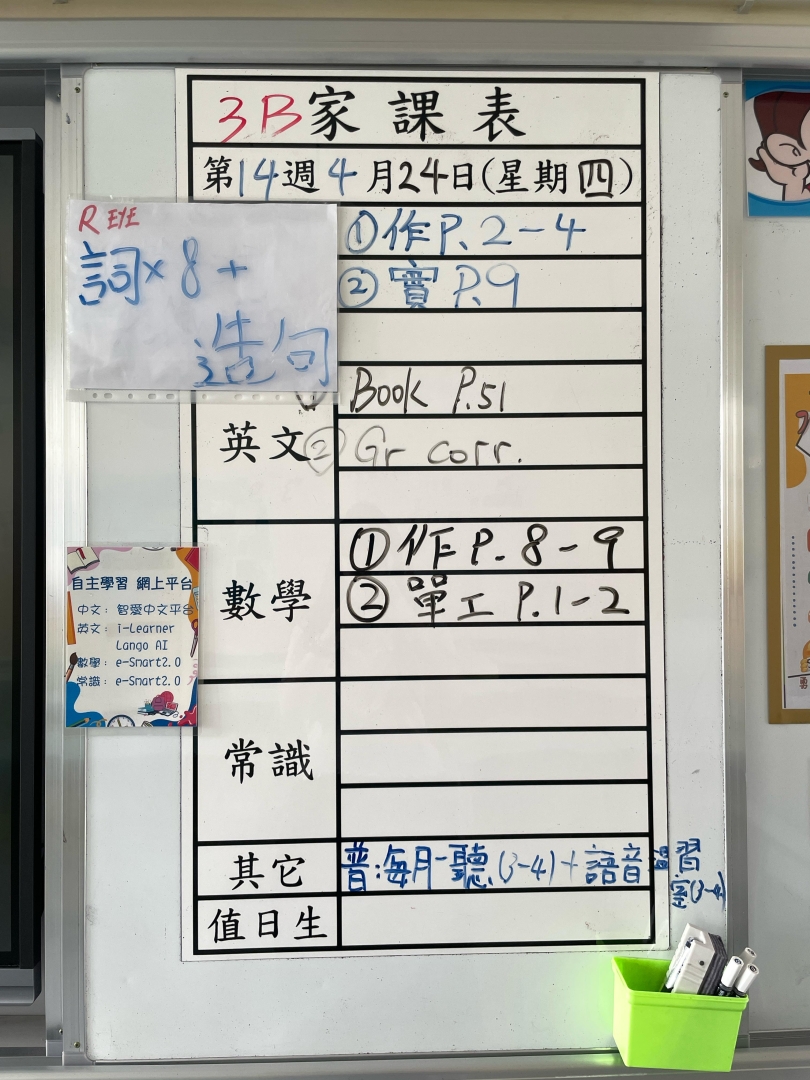 3B家課表
第14週4月24日(星期四)
R EYE
詞×8+
造句
①作P.2-4
②實P.9
英文
Book P.51
② Gr corr.
數學
①作P.8-9
②單工P.1-2
常識
其它
普:每月一聽(3-4)+語音溫習
室(3-4)
值日生
自主學習 網上平台
中文: 智愛中文平台
英文: i-Learner
Lango AI
數學: e-Smart2.0
常識: e-Smart2.0